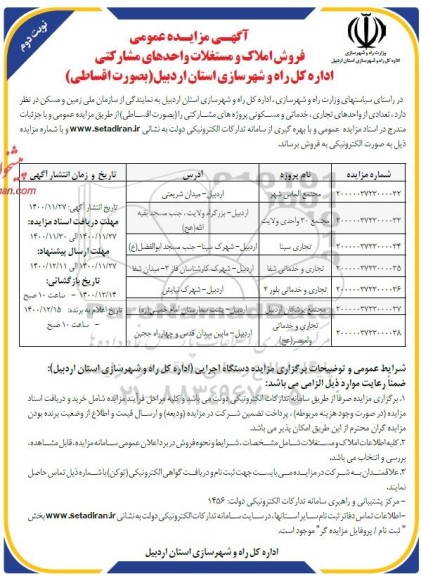 نوبت دوم
آگهی مزایده عمومی
فروش املاک و مستغلات واحدهای مشارکتی
اداره کل راه و شهرسازی استان اردبیل (بصورت اقساطی)
وزارت راه و شهرسازی
اداره کل راه و شهرسازی استان اردبیل
در راستای سیاستهای وزارت راه و شهرسازی، اداره کل راه و شهرسازی استان اردبیل به نمایندگی از سازمان ملی زمین و مسکن در نظر
دارد، تعدادی از واحدهای تجاری، خدماتی و مسکونی پروژه های مشارکتی را (بصورت اقساطی) از طریق مزایده عمومی و با جزئیات
مندرج در اسناد مزایده عمومی و با بهره گیری از سامانه تدارکات الکترونیکی دولت به نشانی www.setadiran.ir و با شماره مزایده
ذیل به صورت الکترونیکی به فروش برساند.
شماره مزایده نام پروژه آدرس تاریخ و زمان انتشار آگهی
۲۰۰۰۰۰۳۷۲۳۰۰۰۰۳۲ مجتمع الماس شهر اردبیل- میدان شریعتی
۲۰۰۰۰۰۳۷۲۳۰۰۰۰۳۳ مجتمع ۳۰ واحدی ولایت اردبیل- بزرگراه ولایت، جنب مسجد بقیه الله(عج)
۲۰۰۰۰۰۳۷۲۳۰۰۰۰۳۴ تجاری سینا اردبیل- شهرک سینا- جنب مسجد ابوالفضل(ع)
۲۰۰۰۰۰۳۷۲۳۰۰۰۰۳۵ تجاری و خدماتی شفا اردبیل- شهرک کارشناسان فاز ۲- میدان شفا
۲۰۰۰۰۰۳۷۲۳۰۰۰۰۳۶ تجاری و خدماتی بلور ۲ اردبیل- شهرک نیایش
۲۰۰۰۰۰۳۷۲۳۰۰۰۰۳۷ مجتمع پزشکان اردبیل اردبیل- پشت بیمارستان امام خمینی(ره)
۲۰۰۰۰۰۳۷۲۳۰۰۰۰۳۸ تجاری و خدماتی ولیعصر(عج) اردبیل- مابین میدان قدس و چهارراه ججین
تاریخ انتشار آگهی: ۱۴۰۰/۱۱/۲۷
مهلت دریافت اسناد مزایده:
۱۴۰۰/۱۱/۲۷ الی ۱۴۰۰/۱۱/۳۰
مهلت ارسال پیشنهاد:
۱۴۰۰/۱۱/۲۷ الی ۱۴۰۰/۱۲/۱۱
تاریخ بازگشائی:
۱۴۰۰/۱۲/۱۴ - ساعت ۱۰ صبح
تاریخ اعلام به برنده: ۱۴۰۰/۱۲/۱۵
ساعت ۱۰ صبح
شرایط عمومی و توضیحات برگزاری مزایده دستگاه اجرایی (اداره کل راه و شهرسازی استان اردبیل):
ضمناً رعایت موارد ذیل الزامی می باشد:
۱. برگزاری مزایده صرفاً از طریق سامانه تدارکات الکترونیکی دولت می باشد و کلیه مراحل فرآیند مزایده شامل خرید و دریافت اسناد
مزایده (در صورت وجود هزینه مربوطه)، پرداخت تضمین شرکت در مزایده (ودیعه) و ارسال قیمت و اطلاع از وضعیت برنده بودن
مزایده گران محترم از این طریق امکان پذیر می باشد.
۲. کلیه اطلاعات املاک و مستغلات شامل مشخصات، شرایط و نحوه فروش در برد اعلان عمومی سامانه مزایده، قابل مشاهده،
بررسی و انتخاب می باشد.
۳. علاقمندان به شرکت در مزایده می بایست جهت ثبت نام و دریافت گواهی الکترونیکی (توکن) با شماره ذیل تماس حاصل
نمایند.
- مرکز پشتیبانی و راهبری سامانه تدارکات الکترونیکی دولت: ۱۴۵۶
- اطلاعات تماس دفاتر ثبت نام سایر استانها، در سایت سامانه تدارکات الکترونیکی دولت به نشانی www.setadiran.ir بخش
" ثبت نام / پروفایل مزایده گر" موجود است.
اداره کل راه و شهرسازی استان اردبیل